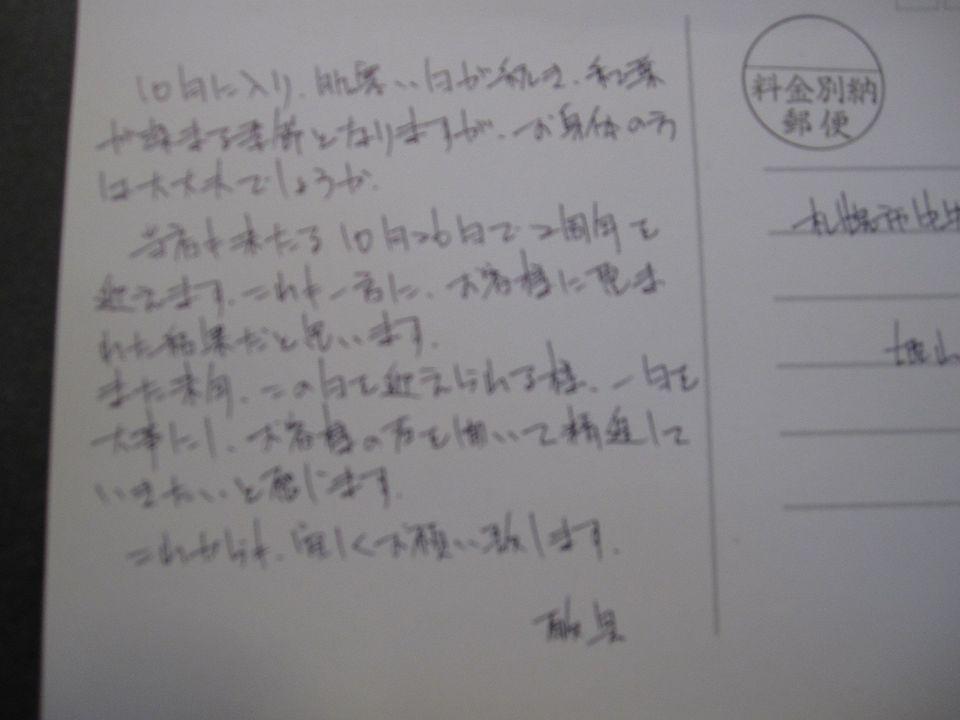 10月に入り、肌寒い日が続き、紅葉
が染まる季節となりますが、お身体の方
は大丈夫でしょうか。
当店も来たる10月26日で2周年を
迎えます。これも一言に、お客様に恵ま
れた結果だと思います。
また来年、この日を迎えられる様、一日を
大事にし、お客様の方を向いて精進して
いきたいと感じます。
これからも、宜しくお願い致します。
料金別納
郵便
札幌市